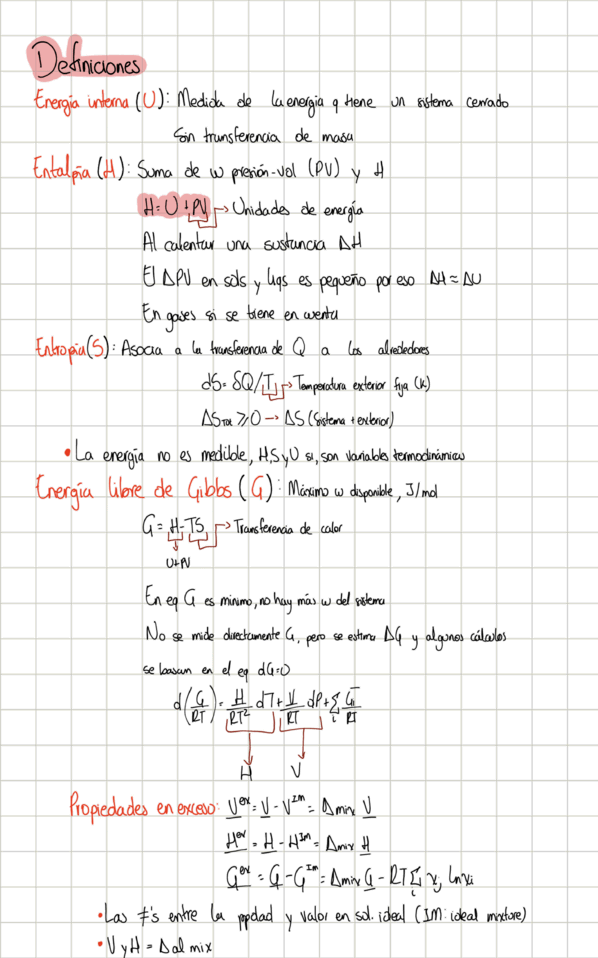 Definiciones
Energía interna (U): Medida de la energia q tiene un sistema cerrado
Sin transferencia de masa
Entalpía (H): Suma de w presión-vol (PV) y H
H=U+PV → Unidades de energía
Al calentar una sustancia ΔH
El ΔPV en sóls y liqs es pequeño por eso ΔH≈ΔU
En gases si se tiene en cuenta
Entropia(S): Asocia a la transferencia de Q a los alrededores
dS=δQ/T → Temperatura exterior fija (K)
ΔS_Tot ≥0 → ΔS (Sistema + exterior)
• La energía no es medible, H,S y U si, son variables termodinámicas
Energía libre de Gibbs (G): Máximo w disponible, J/mol
G=H-TS → Transferencia de calor
U+PV
En eq G es minimo, no hay más w del sistema
No se mide directamente G, pero se estima ΔG y algunos cálculos
se basan en el eq dG=0
d(G/RT)=H/RT² dT+V/RT dP+Σ_i G̅i/RT
H V
Propiedades en exceso: V^ex=V-V^Im=Δmix V
H^ex=H-H^Im=Δmix H
G^ex=G-G^Im=Δmix G-RTΣ_i xi lnxi
• Las ≠'s entre la ppdad y valor en sol. ideal (IM: ideal mixture)
• V y H = Δ al mix